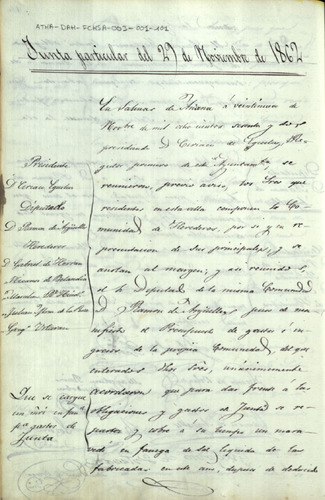 ATHA-DAH-FCHSA-003-001-101
Junta particular del 29 de Noviembre de 1862
En Salinas de Añana á veintinueve de
Novbre de mil ochocientos sesenta y dos
presidiendo D. Ciriaco
primero de este Ayuntamto, se
reunieron, previo aviso, los Sres que
residentes en esta villa componen la Co-
munidad de Herederos, por sí, y en re-
presentacion de sus principales, y se
anotan al margen; y así reunidos,
el Sr. Diputado de la misma Comunidad
D. Ramon de Argüelles puso de ma-
nifiesto el Presupuesto de gastos é in-
gresos de la propia Comunidad, de que
enterados dhos Sres, unánimemente
acordaron que para dar frente á las
obligaciones y gastos de Junta se re-
parta y cobre á su tiempo un mara-
vedí en fanega de Sal líquida de las
fabricadas en este año, despues de deducidos
Presidente
D. Ciriaco
Diputado
D. Ramon de Argüelles
Herederos
D. Gabriel de Herran
Julian
Greg.
Que se cargue
un mrs. en fan.
pa gastos de
Junta